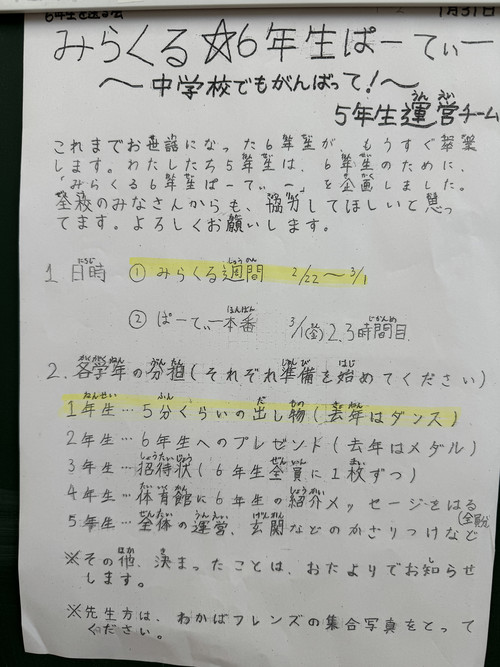 6年生を送る会
1月31日
みらくる☆6年生ぱーてぃー
～中学校でもがんばって!～
5年生運営チーム
これまでお世話になった6年生が、もうすぐ卒業
します。わたしたち5年生は、6年生のために、
「みらくる6年生ぱーてぃー」を企画しました。
全校のみなさんからも、協力してほしいと思っ
てます。よろしくお願いします。
1 日時 ① みらくる週間 2/22～3/1
② ぱーてぃー本番 3/1(金)2.3時間目.
2. 各学年の分担(それぞれ準備を始めてください)
1年生…5分くらいの出し物(去年はダンス)
2年生…6年生へのプレゼント(去年はメダル)
3年生…招待状(6年生全員に1枚ずつ)
4年生…体育館に6年生の紹介メッセージをはる
5年生…全体の運営、玄関などのかざりつけなど
※その他、決まったことは、おたよりでお知らせ
します。
※先生方は、わかばフレンズの集合写真をとって
ください。